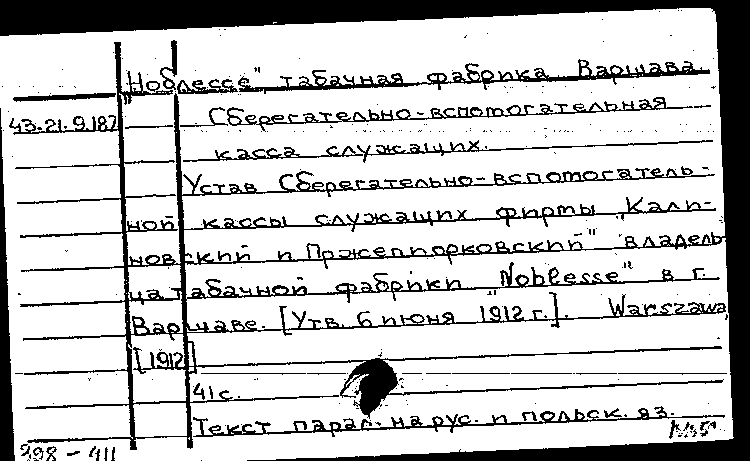 „Ноблессе", табачная фабрика Варшава.
43.21.9.187
Сберегательно-вспомогательная
касса служащих.
Устав Сберегательно-вспомогатель-
ной кассы служащих фирмы „Кали-
новский и Пржепиорковский" владель-
ца табачной фабрики „Noblesse" в г.
Варшаве. [Утв. 6 июня 1912 г.]. Warszawa
[1912]
41 с.
Текст парал. на рус. и польск. яз.
398-411